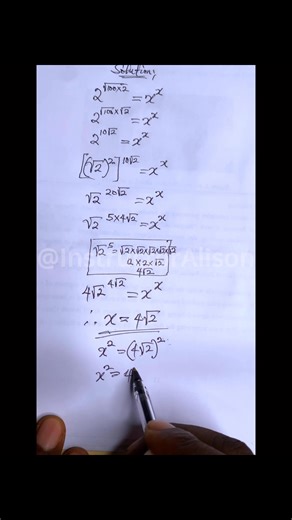 Solution;
2^√100×2 = x^x
2^√100×√2 = x^x
2^10√2 = x^x
[(√2)^2]^10√2 = x^x
√2^20√2 = x^x
√2^5×4√2 = x^x
√2^5 = √2×√2×√2×√2×√2
2×2×√2
4√2
4√2^4√2 = x^x
∴ x = 4√2
x^2 = (4√2)^2
x^2 = 4